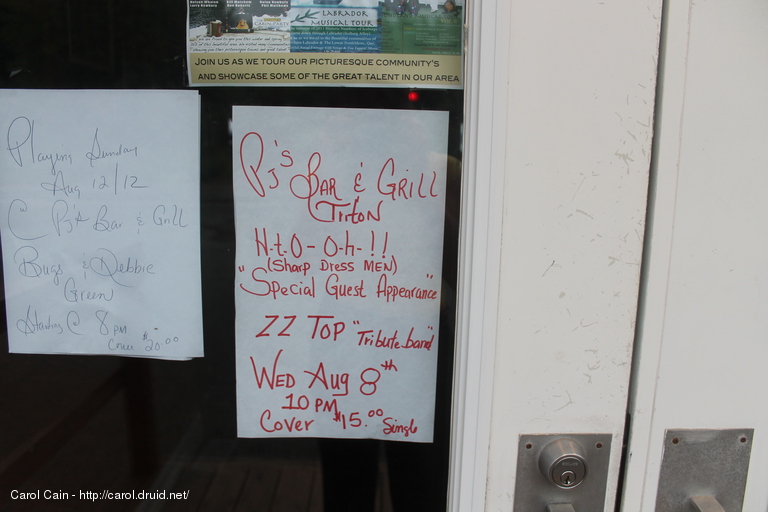 LABRADOR
MUSICAL TOUR
JOIN US AS WE TOUR OUR PICTURESQUE COMMUNITY'S
AND SHOWCASE SOME OF THE GREAT TALENT IN OUR AREA
Playing Sunday
Aug 12/12
@ PJ's Bar & Grill
Bugs & Debbie
Green
Starting @ 8 PM
Cover $20.00
PJ's
BAR & GRILL
H-t-O-O-h-!!
(SHARP DRESS MEN)
"Special Guest Appearance"
ZZ TOP "Tribute band"
WED AUG 8th
10 PM
Cover $15.00 Single
Carol Cain - http://carol.druid.net/